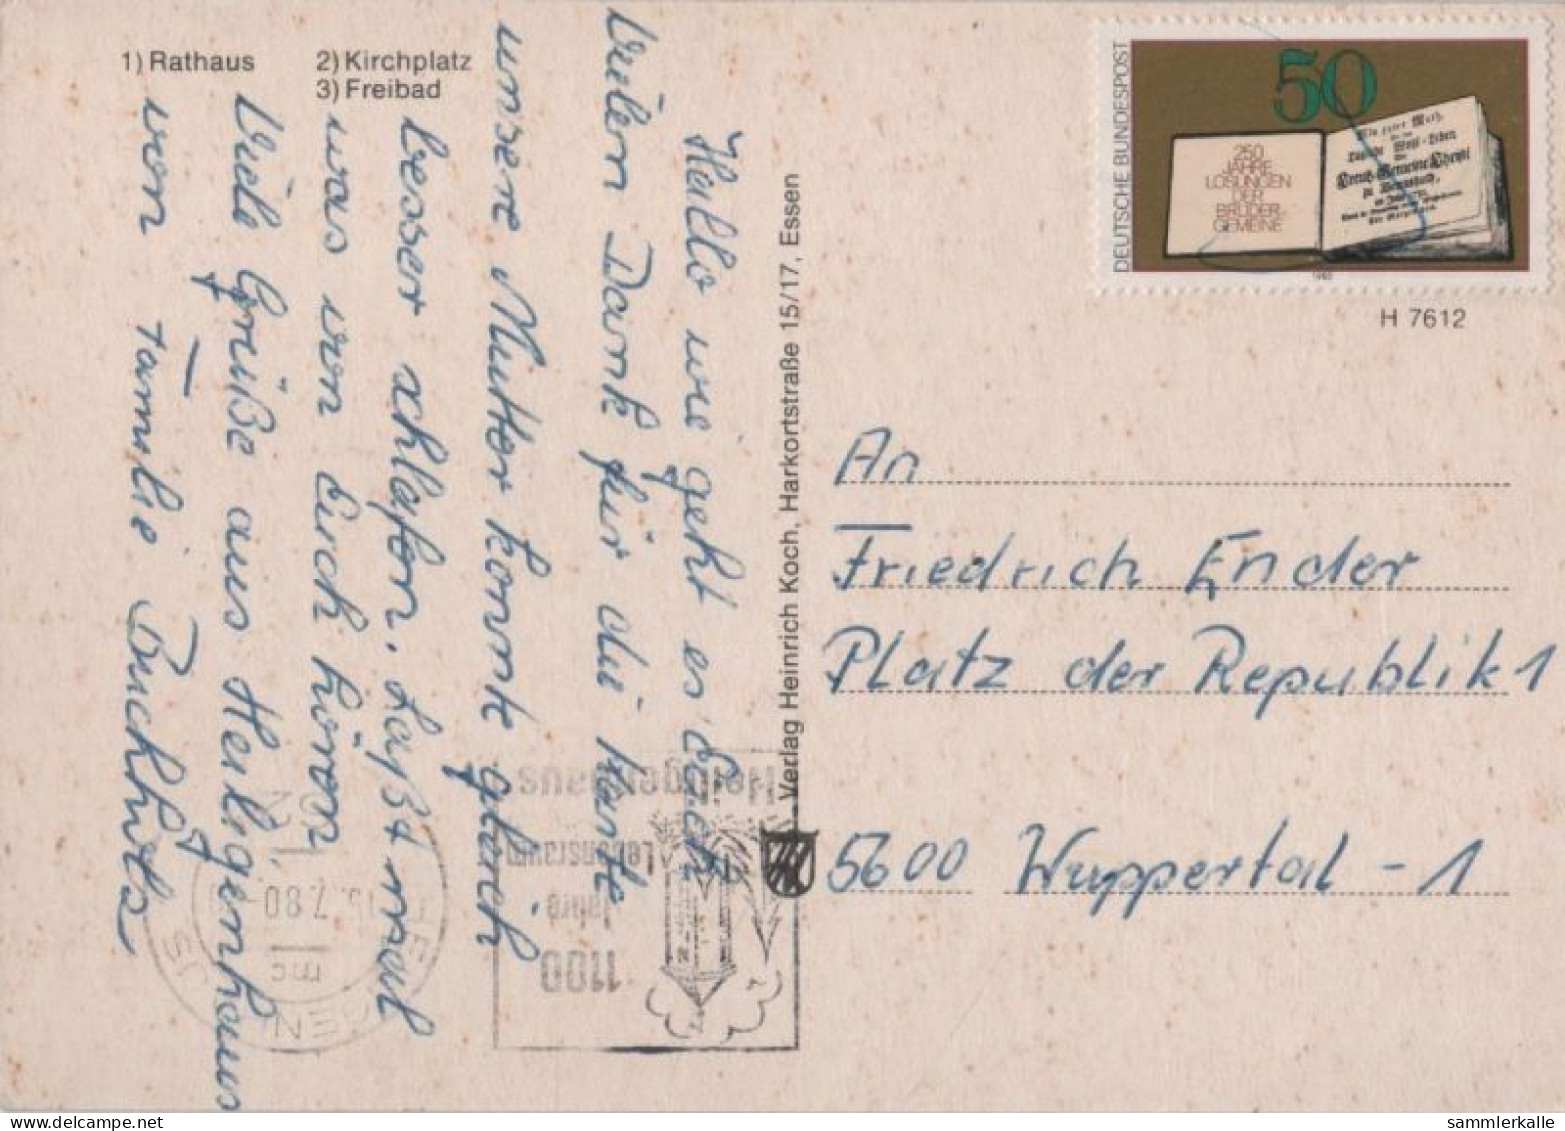 1) Rathaus
2) Kirchplatz
3) Freibad
Hallo wie geht es Euch
vielen Dank für die Karte
unsere Mutter konnte gleich
besser schlafen. Laßt mal
was von Euch hören
Viele Grüße aus Heiligenhaus
von Familie Buchholz
Verlag Heinrich Koch, Harkortstraße 15/17, Essen
DEUTSCHE BUNDESPOST
50
250
JAHRE
LOSUNGEN
DER
BRÜDER-
GEMEINE
1980
H 7612
An
Friedrich Ender
Platz der Republik 1
5600 Wuppertal - 1
1100
Jahre
Lebensraum
Heiligenhaus
15.7.80
mc
sammlerkalle